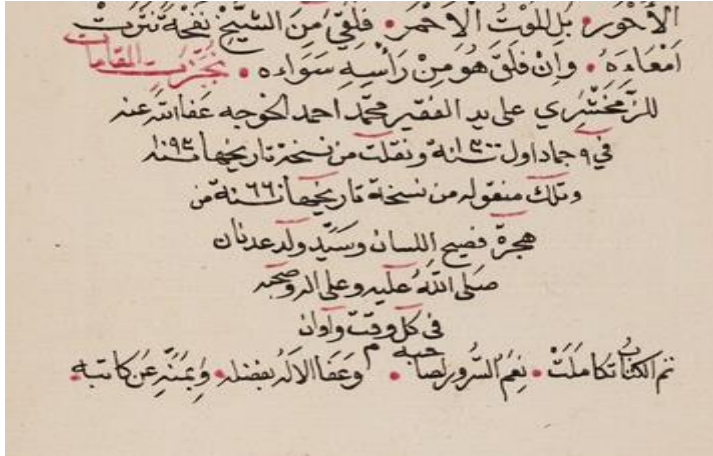 الأَحْوَر بَلِ للْوْتُ الاَحْمَر فَلَقِيَ مِنَ الشَّيْخِ نَفْحَةً نَتَرَتْ
اَمْعَاءَهُ وَاِنْ فَلَقَ هُوَ مِنْ رَأْسِهِ سَوَاءه نجزت المقامات
للزمخشري على يد الفقير محمّد احمد الخوجه عفا الله عنه
في ٩ جماد اول سنة ١٣٠٠ ونقلت من نسخة تاريخها سنة ١٠٩٣
وتلك منقوله من نسخة تاريخها سنة ٦٦٠ من
هجرة فصيح اللسان وسيّد ولد عدنان
صلى اللهُ عليه وعلى اله وصحبه
في كل وقت وآوان
م
تم الكتاب تكاملت نِعَمُ السُّرور لصاحبه وَعَفَا الاله بفضله وبمنّه عن كاتبه